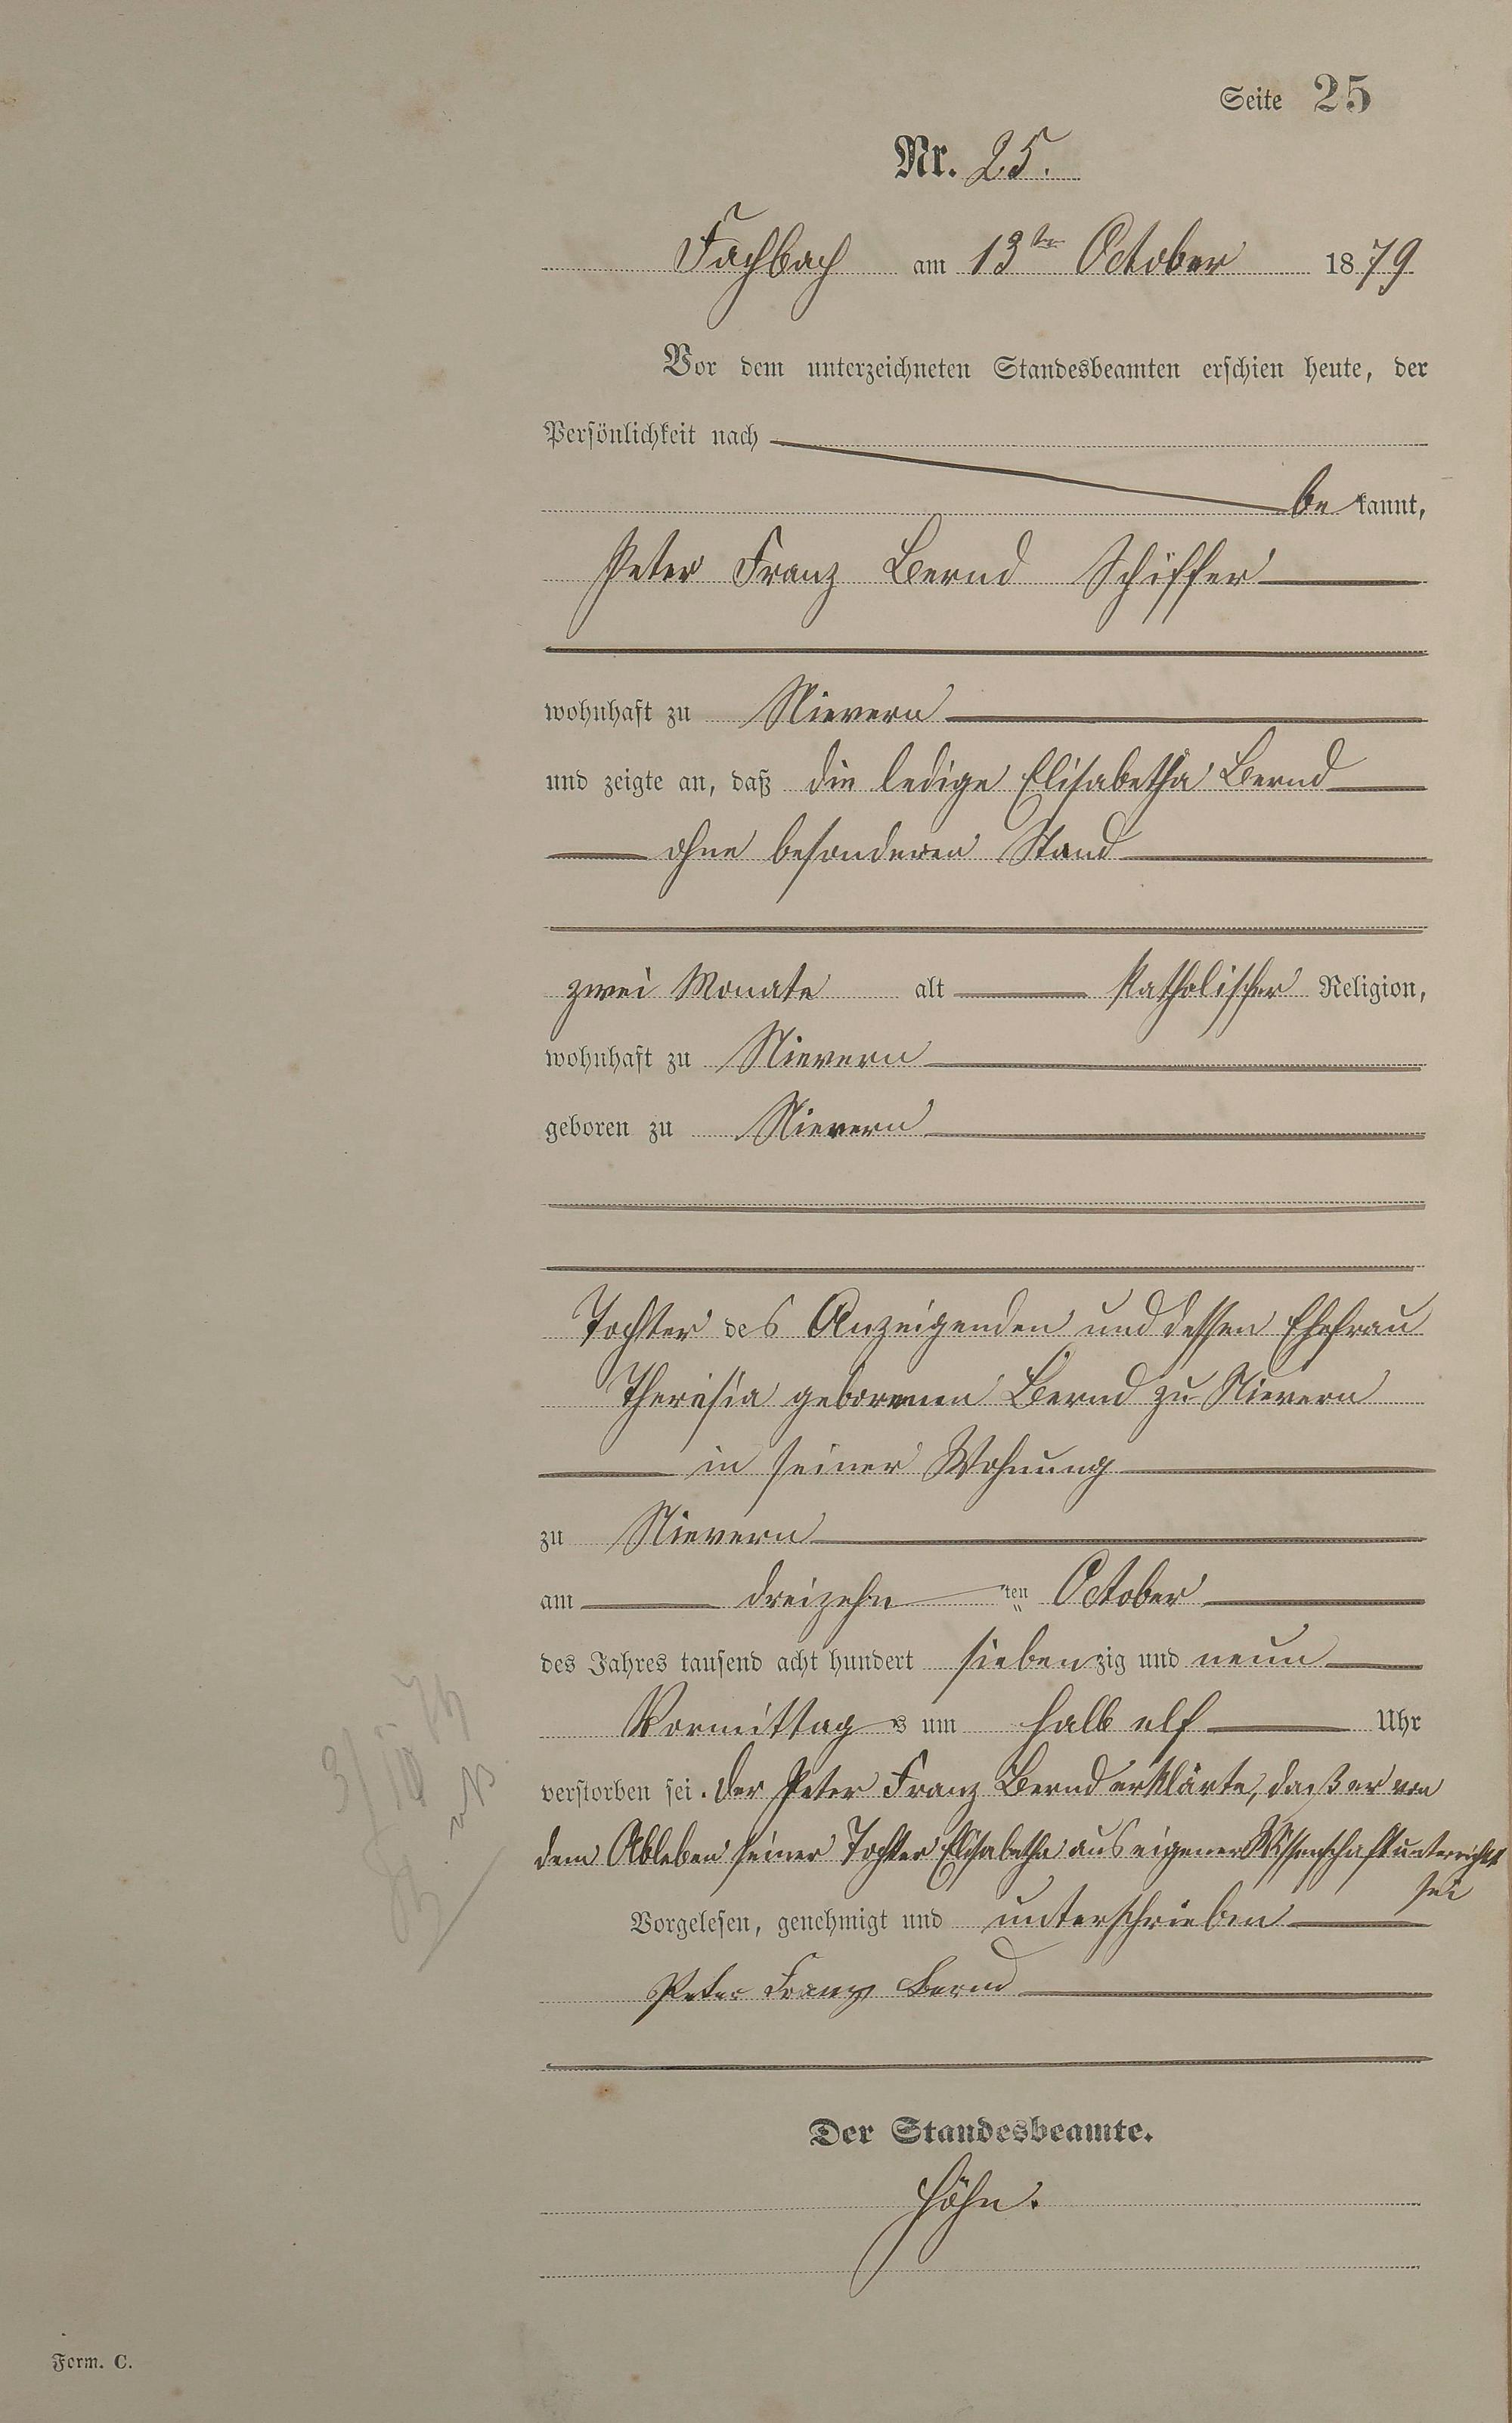 Seite 25
Nr. 25.
Fachbach am 13ten October 1879
Vor dem unterzeichneten Standesbeamten erschien heute, der
Persönlichkeit nach
bekannt,
Peter Franz Bernd Schiffer
wohnhaft zu Nievern
und zeigte an, daß die ledige Elisabetha Bernd
ohne besonderen Stand
zwei Monate alt katholischer Religion,
wohnhaft zu Nievern
geboren zu Nievern
Tochter des Anzeigenden und dessen Ehefrau
Theresia geborenen Bernd zu Nievern
in seiner Wohnung
zu Nievern
am dreizehnten October
des Jahres tausend acht hundert siebenzig und neun
Vormittags um halb elf Uhr
verstorben sei. Der Peter Franz Bernd erklärte, daß er von
dem Ableben seiner Tochter Elisabetha aus eigener Wissenschaft unterrichtet
sei
Vorgelesen, genehmigt und unterschrieben
Peter Franz Bernd
Der Standesbeamte.
Höhn.
Form. C.